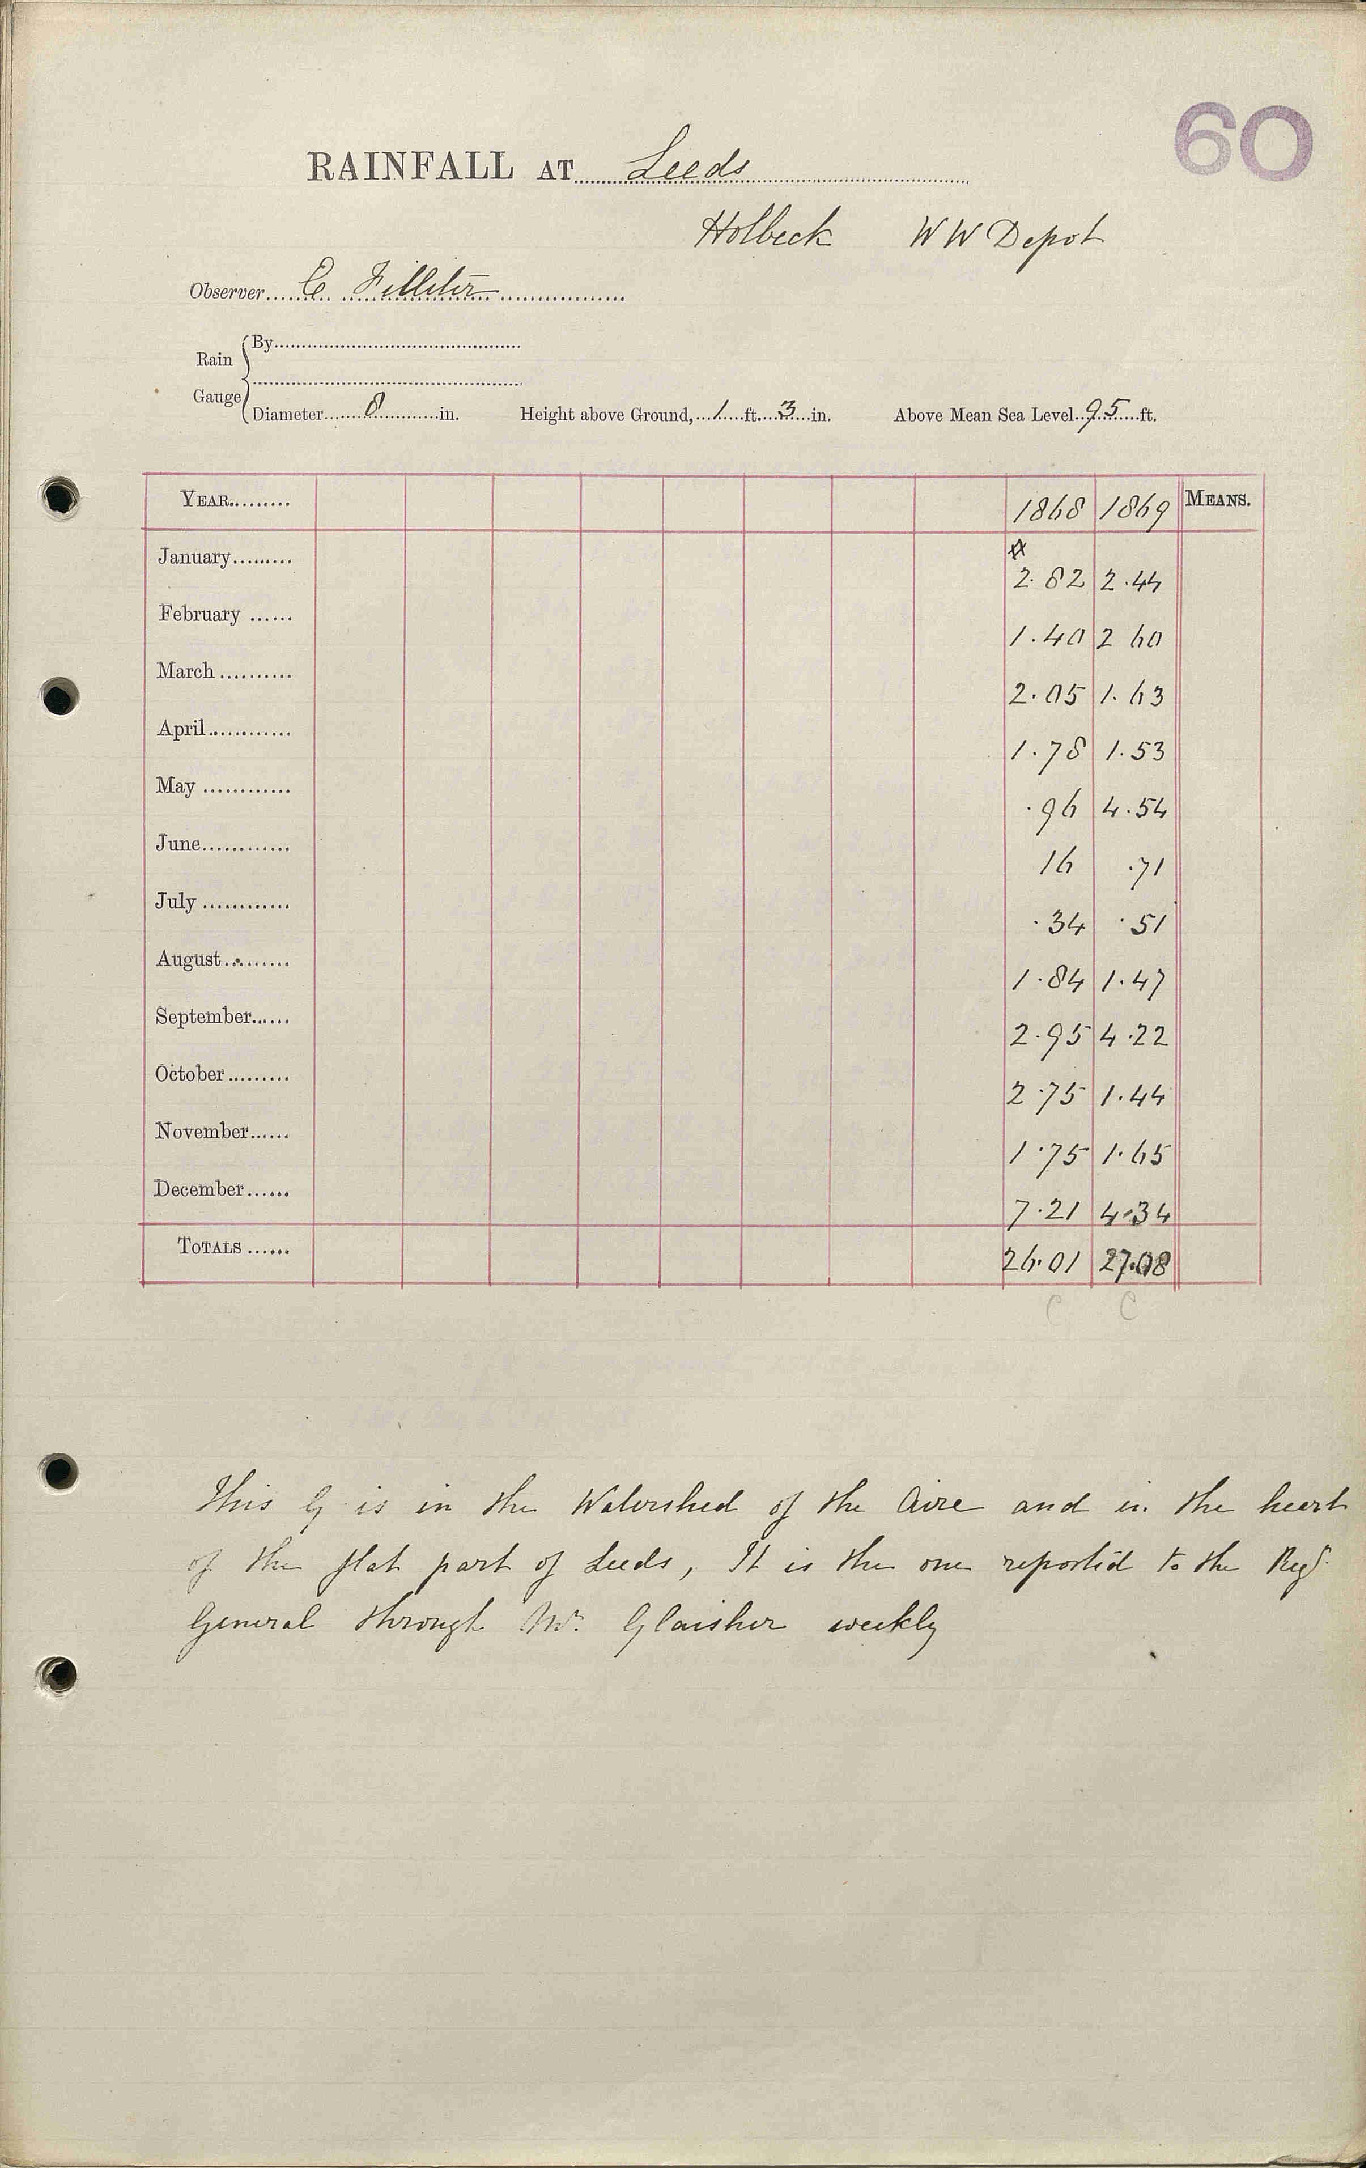 60
RAINFALL AT Leeds
Holbeck WW Depot
Observer C Filliter
Rain Gauge
By
Diameter 8 in. Height above Ground, 1 ft. 3 in. Above Mean Sea Level 95 ft.
YEAR 1868 1869 MEANS.
☆
January 2.82 2.44
February 1.40 2 60
March 2.05 1.63
April 1.78 1.53
May .96 4.54
June 16 .71
July .34 .51
August 1.84 1.47
September 2.95 4.22
October 2.75 1.44
November 1.75 1.65
December 7.21 4.34
TOTALS 26.01 27.08
C C
This G is in the Watershed of the Aire and in the heart
of the flat part of Leeds, It is the one reported to the Regr
General through Mr. Glaisher weekly